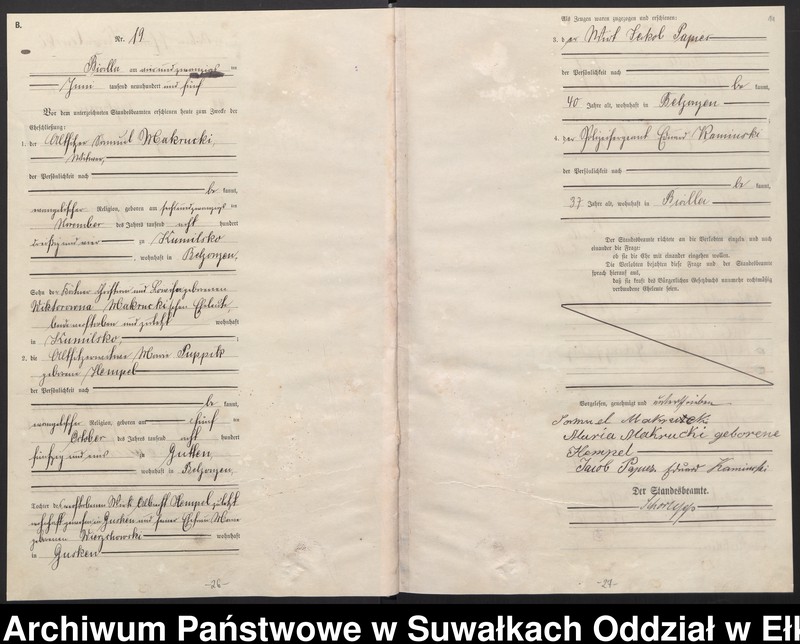 B.
Nr. 19
Bialla am vier und zwanzigsten
Juni tausend neunhundert und fünf
Vor dem unterzeichneten Standesbeamten erschienen heute zum Zweck der
Eheschließung:
1. der Altsitzer Samuel Makrucki,
Witwer,
der Persönlichkeit nach
be kannt,
evangelischer Religion, geboren am
November des Jahres tausend acht hundert
dreißig und vier zu Kumilsko
, wohnhaft in Belzonzen,
Sohn der
Makrucki schen Eheleute,
beide verstorben und zuletzt wohnhaft
in Kumilsko, ;
2. die Altsitzerwitwe Marie Puppik
geborene Hempel
der Persönlichkeit nach
be kannt,
evangelischer Religion, geboren am fünf ten
October des Jahres tausend acht hundert
fünfzig und eins zu Gutten,
wohnhaft in Belzonzen,
Tochter des verstorbenen Wirt Albrecht Hempel zuletzt
wohnhaft gewesen in Gusken und seiner Ehefrau Marie
geborenen wohnhaft
in Gusken
-26-
Als Zeugen waren zugezogen und erschienen:
3. der Wirt Jakob Papies
der Persönlichkeit nach
be kannt,
40 Jahre alt, wohnhaft in Belzonzen
;
4. der Polizeisergeant Eduard Kaminski
der Persönlichkeit nach
be kannt,
37 Jahre alt, wohnhaft in Bialla
Der Standesbeamte richtete an die Verlobten einzeln und nach
einander die Frage:
ob sie die Ehe mit einander eingehen wollen.
Die Verlobten bejahten diese Frage und der Standesbeamte
sprach hierauf aus,
daß sie kraft des Bürgerlichen Gesetzbuchs nunmehr rechtmäßig
verbundene Eheleute seien.
Vorgelesen, genehmigt und unterschrieben
Samuel Makrucki
Maria Makrucki geborene
Hempel
Jacob Papies Eduard Kaminski
Der Standesbeamte.
-27-
Archiwum Państwowe w Suwałkach Oddział w Eł